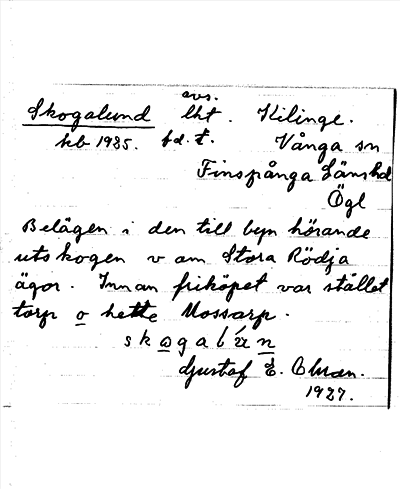 Skogalund avs. lht. Kilinge.
hb 1925. fd. t. Vånga sn
Finspånga Länshd
Ögl
Belägen i den till byn hörande
utskogen v om Stora Rödja
ägor. Innan friköpet var stället
torp o hette Mossarp.
Gustaf E. Ohman.
1927.